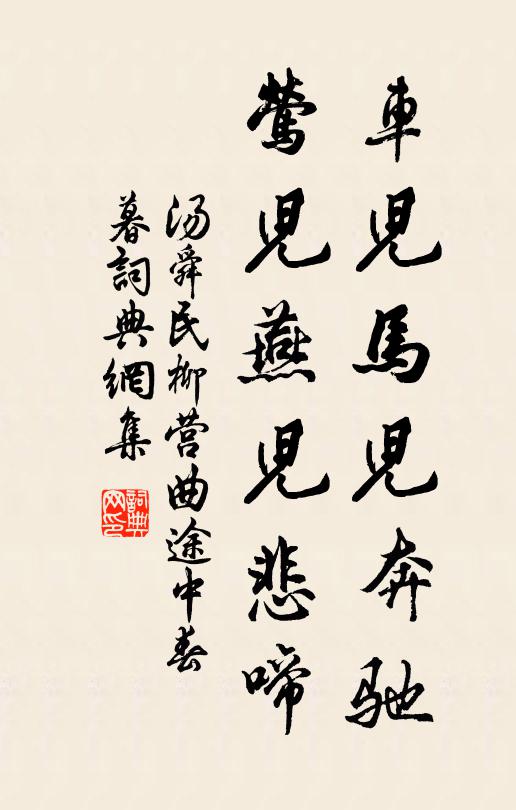 車兒馬兒奔馳
鶯兒燕兒悲啼
湯舜民柳營曲途中春
暮詞典網集
詞典
网印